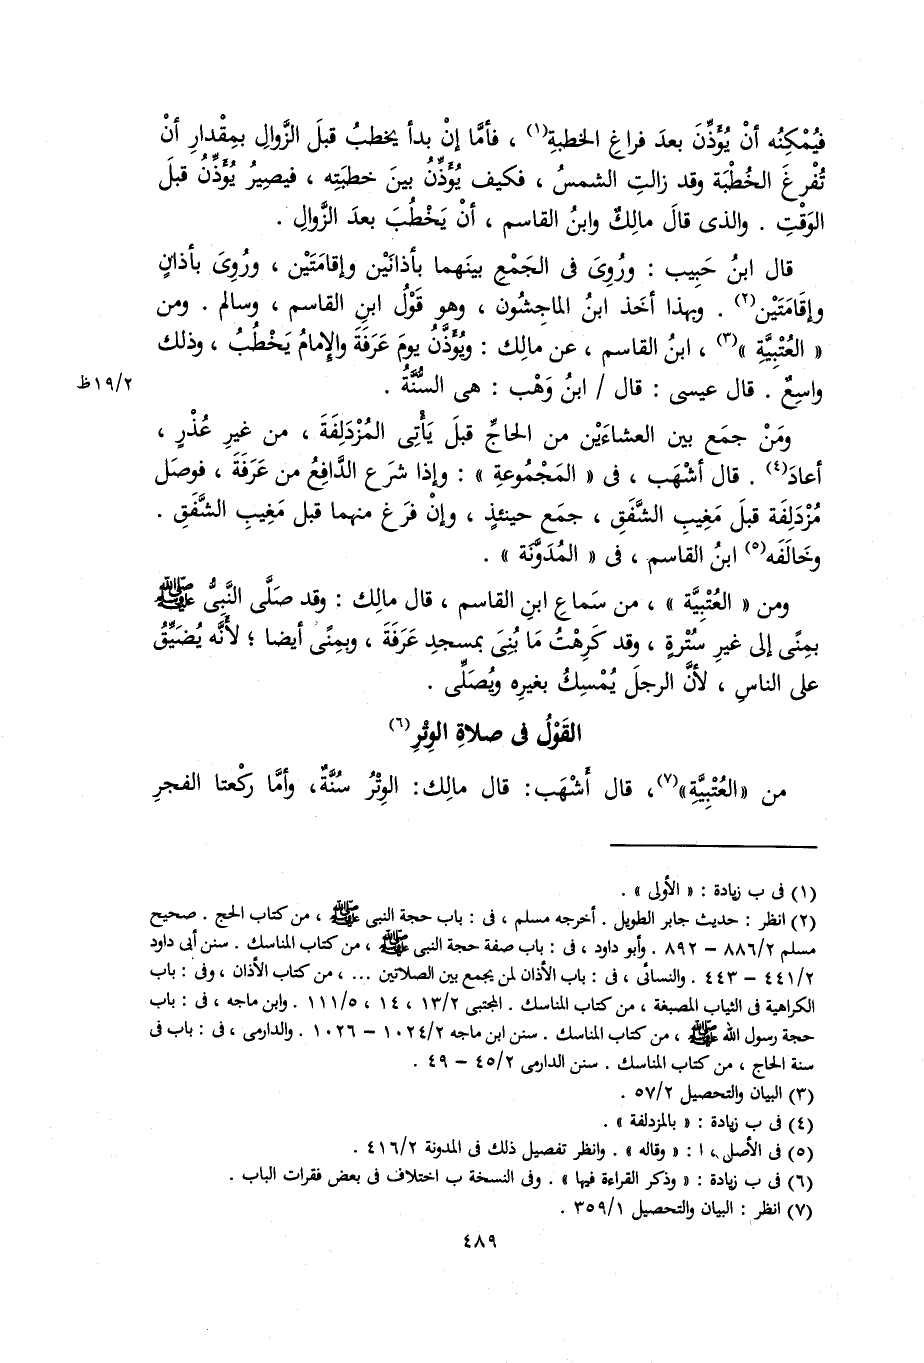 فيُمْكِنُه أنْ يُؤَذِّنَ بعدَ فراغِ الخطبةِ(١) ، فأمَّا إنْ بدأ يخطبُ قبلَ الزَّوالِ بمِقْدارِ أنْ
تُفْرغَ الخُطْبَة وقد زالتِ الشمسُ ، فكيف يُؤَذِّنُ بينَ خطبتِه ، فيصِيرُ يُؤَذِّنُ قبلَ
الوَقْتِ . والذى قالَ مالِكٌ وابنُ القاسم ، أنْ يَخْطُبَ بعدَ الزَّوالِ .
قال ابنُ حَبِيب : ورُوِىَ فى الجَمْعِ بينَهما بأذانَيْن وإقامَتَيْن ، ورُوِىَ بأذانٍ
وإقَامَتَيْن(٢) . وبهذا أخَذ ابنُ الماجِشُون ، وهو قَوْلُ ابنِ القاسم ، وسالم . ومن
« العُتْبِيَّةِ »(٣) ، ابنُ القاسم ، عن مالِك : ويُؤَذَّنُ يومَ عَرَفَةَ والإمامُ يَخْطُبُ ، وذلك
واسِعٌ . قال عيسى : قال / ابنُ وَهْب : هى السُّنَّةُ .
١٩/٢ظ
ومَنْ جمَع بين العشاءَيْن من الحاجِّ قبلَ يَأْتِى المُزْدَلِفَةَ ، من غيرِ عُذْرٍ ،
أعادَ(٤) . قال أشْهَب ، فى « المَجْمُوعةِ » : وإذا شرَع الدَّافِعُ من عَرَفَةَ ، فوصَل
مُزْدَلِفَة قبلَ مَغِيبِ الشَّفَقِ ، جمَع حينئذٍ ، وإنْ فرَغ منهما قبل مَغِيبِ الشَّفَقِ .
وخَالَفَه(٥) ابنُ القاسم ، فى « المُدَوَّنَة » .
ومن « العُتْبِيَّة » ، من سَماعِ ابنِ القاسم ، قال مالِك : وقد صَلَّى النَّبِىُّ ﷺ
بمِنًى إلى غيرِ سُتْرةٍ ، وقد كَرِهْتُ مَا بُنِىَ بمسجدِ عَرَفَةَ ، وبمِنًى أيضا ؛ لأنَّه يُضَيِّقُ
على الناسِ ، لأنَّ الرجلَ يُمْسِكُ بغيرِه ويُصَلِّى .
القَوْلُ فى صلاةِ الوِتْرِ(٦)
من «العُتْبِيَّةِ»(٧)، قال أَشْهَب: قال مالِك: الوِتْرُ سُنَّةٌ، وأمَّا ركْعتا الفجرِ
(١) فى ب زيادة : « الأولى » .
(٢) انظر : حديث جابر الطويل . أخرجه مسلم ، فى : باب حجة النبى ﷺ ، من كتاب الحج . صحيح
مسلم ٨٨٦/٢ – ٨٩٢ . وأبو داود ، فى : باب صفة حجة النبى ﷺ ، من كتاب المناسك . سنن أبى داود
٤٤١/٢ – ٤٤٣ . والنسائى ، فى : باب الأذان لمن يجمع بين الصلاتين ... ، من كتاب الأذان ، وفى : باب
الكراهية فى الثياب المصبغة ، من كتاب المناسك . المجتبى ١٣/٢ ، ١٤ ، ١١١/٥ . وابن ماجه ، فى : باب
حجة رسول الله ﷺ ، من كتاب المناسك . سنن ابن ماجه ١٠٢٤/٢ – ١٠٢٦ . والدارمى ، فى : باب فى
سنة الحاج ، من كتاب المناسك . سنن الدارمى ٤٥/٢ – ٤٩ .
(٣) البيان والتحصيل ٥٧/٢ .
(٤) فى ب زيادة : « بالمزدلفة » .
(٥) فى الأصل ، ا : « وقاله » . وانظر تفصيل ذلك فى المدونة ٤١٦/٢ .
(٦) فى ب زيادة : « وذكر القراءة فيها » . وفى النسخة ب اختلاف فى بعض فقرات الباب .
(٧) انظر : البيان والتحصيل ٣٥٩/١ .
٤٨٩